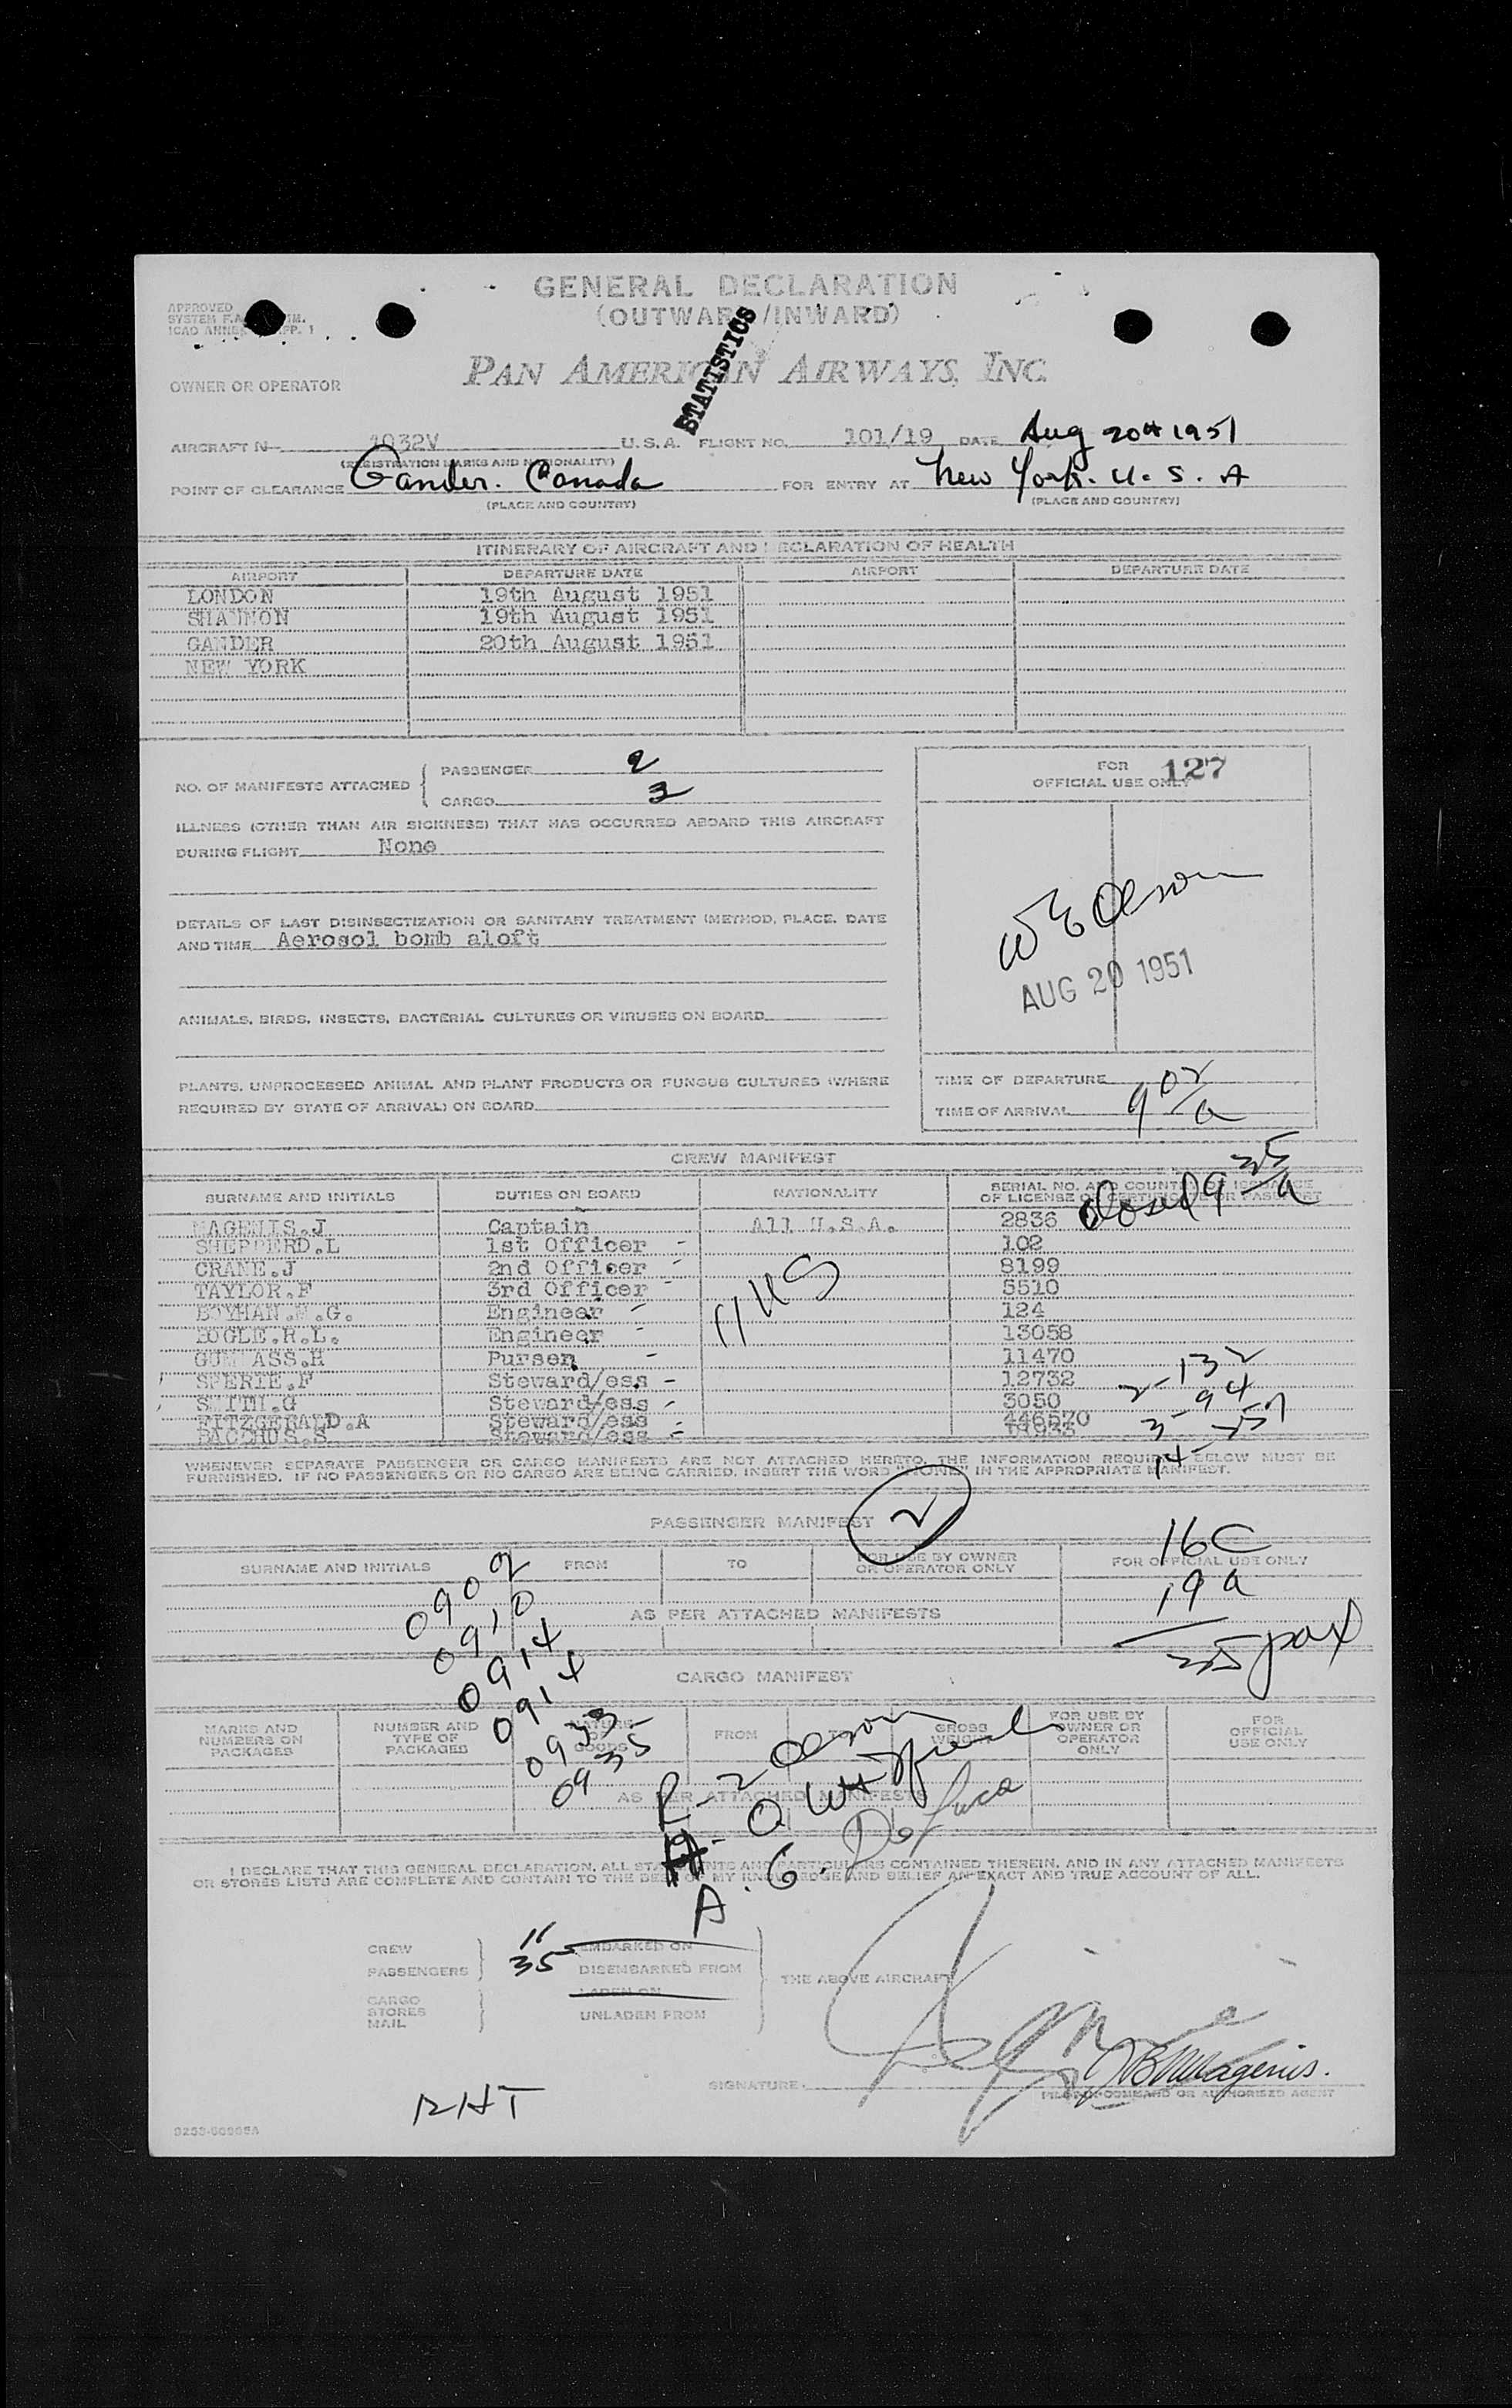 GENERAL DECLARATION
(OUTWARD/INWARD)
APPROVED
SYSTEM
ICAO ANNEX APP. 1
STATISTICS
PAN AMERICAN AIRWAYS, INC.
OWNER OR OPERATOR
AIRCRAFT N- 1032V U.S.A. FLIGHT NO. 101/19 DATE Aug 20th 1951
(REGISTRATION MARKS AND NATIONALITY)
POINT OF CLEARANCE Gander. Canada FOR ENTRY AT New York. U. S. A
(PLACE AND COUNTRY) (PLACE AND COUNTRY)
ITINERARY OF AIRCRAFT AND DECLARATION OF HEALTH
AIRPORT DEPARTURE DATE AIRPORT DEPARTURE DATE
LONDON 19th August 1951
SHANNON 19th August 1951
GANDER 20th August 1951
NEW YORK
NO. OF MANIFESTS ATTACHED
PASSENGER 2
CARGO 3
FOR OFFICIAL USE ONLY 127
ILLNESS (OTHER THAN AIR SICKNESS) THAT HAS OCCURRED ABOARD THIS AIRCRAFT
DURING FLIGHT None
DETAILS OF LAST DISINSECTIZATION OR SANITARY TREATMENT (METHOD, PLACE, DATE
AND TIME Aerosol bomb aloft
W E Olson
AUG 20 1951
ANIMALS, BIRDS, INSECTS, BACTERIAL CULTURES OR VIRUSES ON BOARD
PLANTS, UNPROCESSED ANIMAL AND PLANT PRODUCTS OR FUNGUS CULTURES (WHERE
REQUIRED BY STATE OF ARRIVAL) ON BOARD
TIME OF DEPARTURE
TIME OF ARRIVAL 9 02/a
CREW MANIFEST
closed 9 35/a
SURNAME AND INITIALS DUTIES ON BOARD NATIONALITY SERIAL NO. AND COUNTRY OF ISSUANCE
OF LICENSE OR CERTIFICATE OR PASSPORT
MAGENIS.J Captain All U.S.A. 2836
SHEPPERD.L 1st Officer 102
CRANE.J 2nd Officer 8199
TAYLOR.F 3rd Officer 5510
Engineer 124
R.L. Engineer 13058
Purser 11470
SPERIE.F Steward/ess 12732
SMITH.G Steward/ess 3050
FITZGERALD.A Steward/ess 446570
BACCHUS.S Steward/ess
11 US
2-132
3-94
WHENEVER SEPARATE PASSENGER OR CARGO MANIFESTS ARE NOT ATTACHED HERETO, THE INFORMATION REQUIRED BELOW MUST BE
FURNISHED. IF NO PASSENGERS OR NO CARGO ARE BEING CARRIED, INSERT THE WORD "NONE" IN THE APPROPRIATE MANIFEST.
PASSENGER MANIFEST 2
SURNAME AND INITIALS FROM TO FOR USE BY OWNER OR OPERATOR ONLY FOR OFFICIAL USE ONLY
AS PER ATTACHED MANIFESTS
16C
19a
35 pax
0902
0910
0914
0914
0933
0935
CARGO MANIFEST
MARKS AND NUMBERS ON PACKAGES NUMBER AND TYPE OF PACKAGES NATURE OF GOODS FROM TO GROSS WEIGHT FOR USE BY OWNER OR OPERATOR ONLY FOR OFFICIAL USE ONLY
AS PER ATTACHED MANIFESTS
R-2 Olson
A. G. DeLuca
I DECLARE THAT THIS GENERAL DECLARATION, ALL STATEMENTS AND PARTICULARS CONTAINED THEREIN, AND IN ANY ATTACHED MANIFESTS
OR STORES LISTS ARE COMPLETE AND CONTAIN TO THE BEST OF MY KNOWLEDGE AND BELIEF AN EXACT AND TRUE ACCOUNT OF ALL.
CREW 11 EMBARKED ON
PASSENGERS 35 DISEMBARKED FROM
THE ABOVE AIRCRAFT
CARGO LADEN ON
STORES
MAIL UNLADEN FROM
SIGNATURE. Magenis.
PILOT IN COMMAND OR AUTHORISED AGENT
RHT